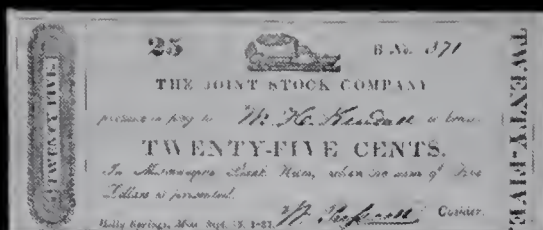 TWENTY FIVE
25
B No. 371
THE JOINT STOCK COMPANY
promise to pay to W. H. Kendall or bearer
TWENTY-FIVE CENTS.
In Mississippi Bank Notes, when the sum of Five
Dollars is presented.
Holly Springs, Miss. Sept.
Cashier.
TWENTY-FIVE